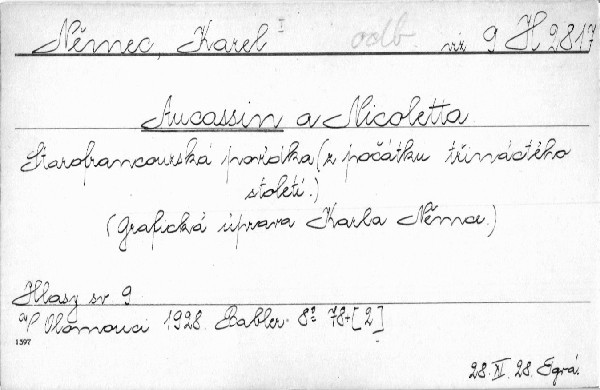 Němec, Karel I odb. viz 9 H 2817
Aucassin a Nicoletta
Starofrancouzská povídka (z počátku třináctého
století.)
(Grafická úprava Karla Němce.)
Hlasy sv. 9
V Olomouci 1928. Babler. 8° 78+[2]
1397
28. XI. 28.